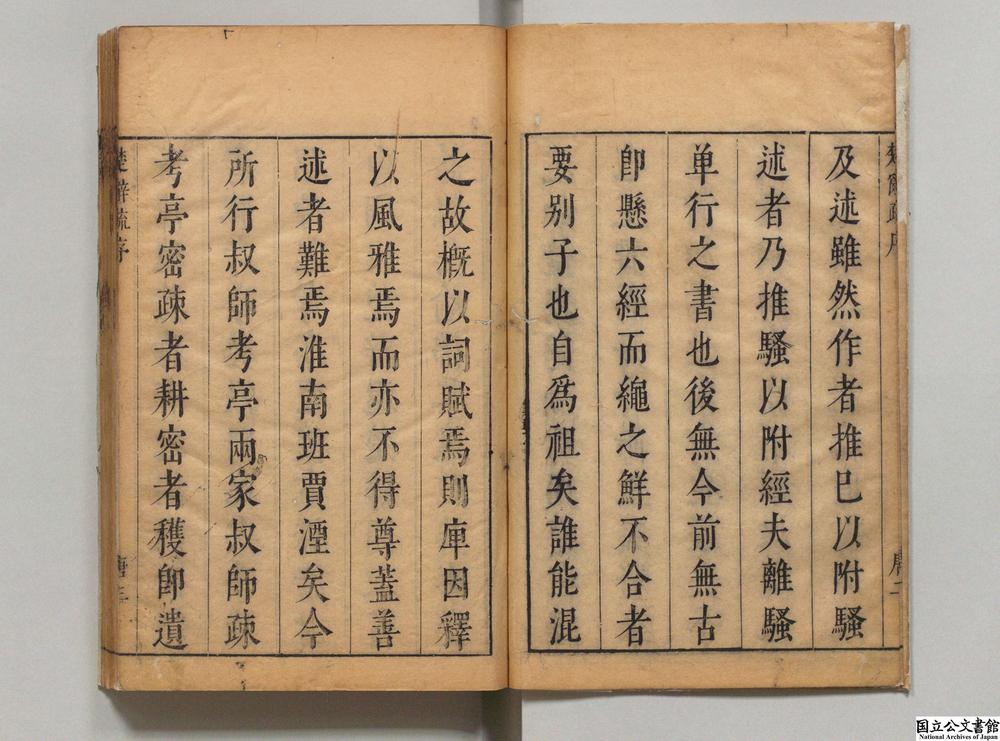 楚辭疏序
唐二
及述雖然作者推已以附騷
述者乃推騷以附經夫離騷
单行之書也後無今前無古
卽懸六經而繩之鮮不合者
要别子也自爲祖矣誰能混
之故概以詞賦焉則庳因釋
以風雅焉而亦不得尊蓋善
述者難焉淮南班賈湮矣今
所行叔師考亭兩家叔師疎
考亭密疎者耕密者穫卽遺
楚辭疏序
唐三
国立公文書館
National Archives of Japan